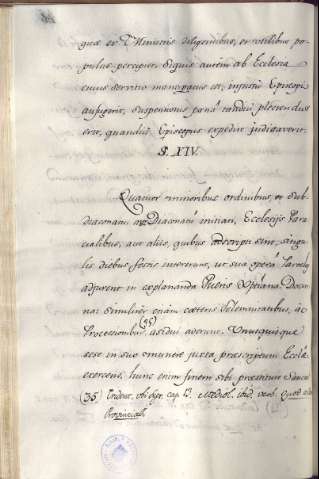 quæ ex Ministris diligentibus, et utilibus po-
pulus percipit. Siquis autem ab Ecclesia
cuius servitio mancipatus est, iniussu Episcopi
aufugerit, suspensionis pœna tandiu plectendus
erit, quandiu Episcopus expedire judicaverit.
§. XIV.
Quatuor minoribus ordinibus, et Sub-
diaconatu, Diaconatu initiati, Ecclesijs Paro
cialibus, aut alijs, quibus adscripti sint, singu-
lis diebus festis intersint, ut sua opera Parocho
adjuvent in explananda Pueris Doctri
na: similiter etiam cæteris Solemnitatibus, ac
Processionibus (35) assidui Unusquisque
in suo munere juxta præscriptum Eccla
exercens, hunc enim finem sibi
(35) cap. Mediol. ibid. verb. Quod
Provinciali.